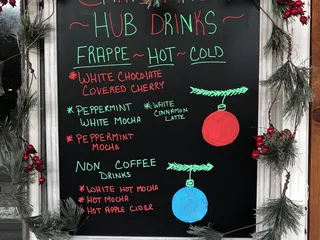 ~ HUB DRINKS ~
FRAPPE ~ HOT ~ COLD
* WHITE CHOCOLATE
COVERED CHERRY
* PEPPERMINT
WHITE MOCHA
* WHITE
CINNAMON
LATTE
* PEPPERMINT
MOCHA
NON COFFEE
DRINKS
* WHITE HOT MOCHA
* HOT MOCHA
* HOT APPLE CIDER